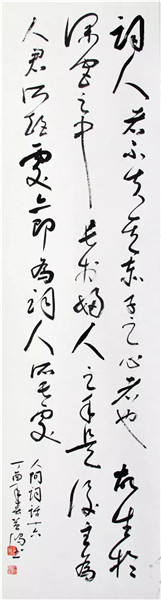 詞人者不失其赤子之心者也故生於
深宮之中長於婦人之手是後主為
人君所短處亦即為詞人所長處
人間詞話十六
丁酉年春